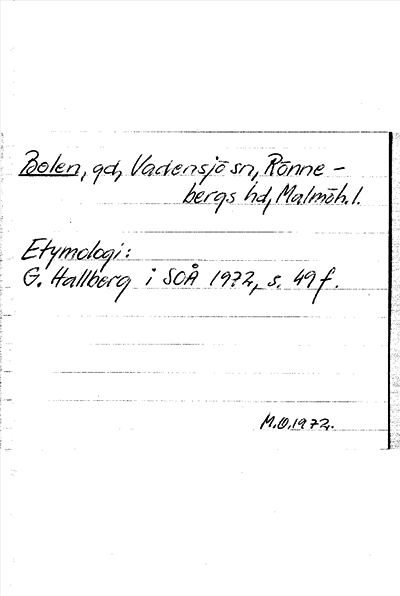 Bolen, gd, Vadensjö sn, Rönne-
bergs hd, Malmöh. l.
Etymologi:
G. Hallberg i SOÅ 1972, s. 49 f.
M.O. 1972.